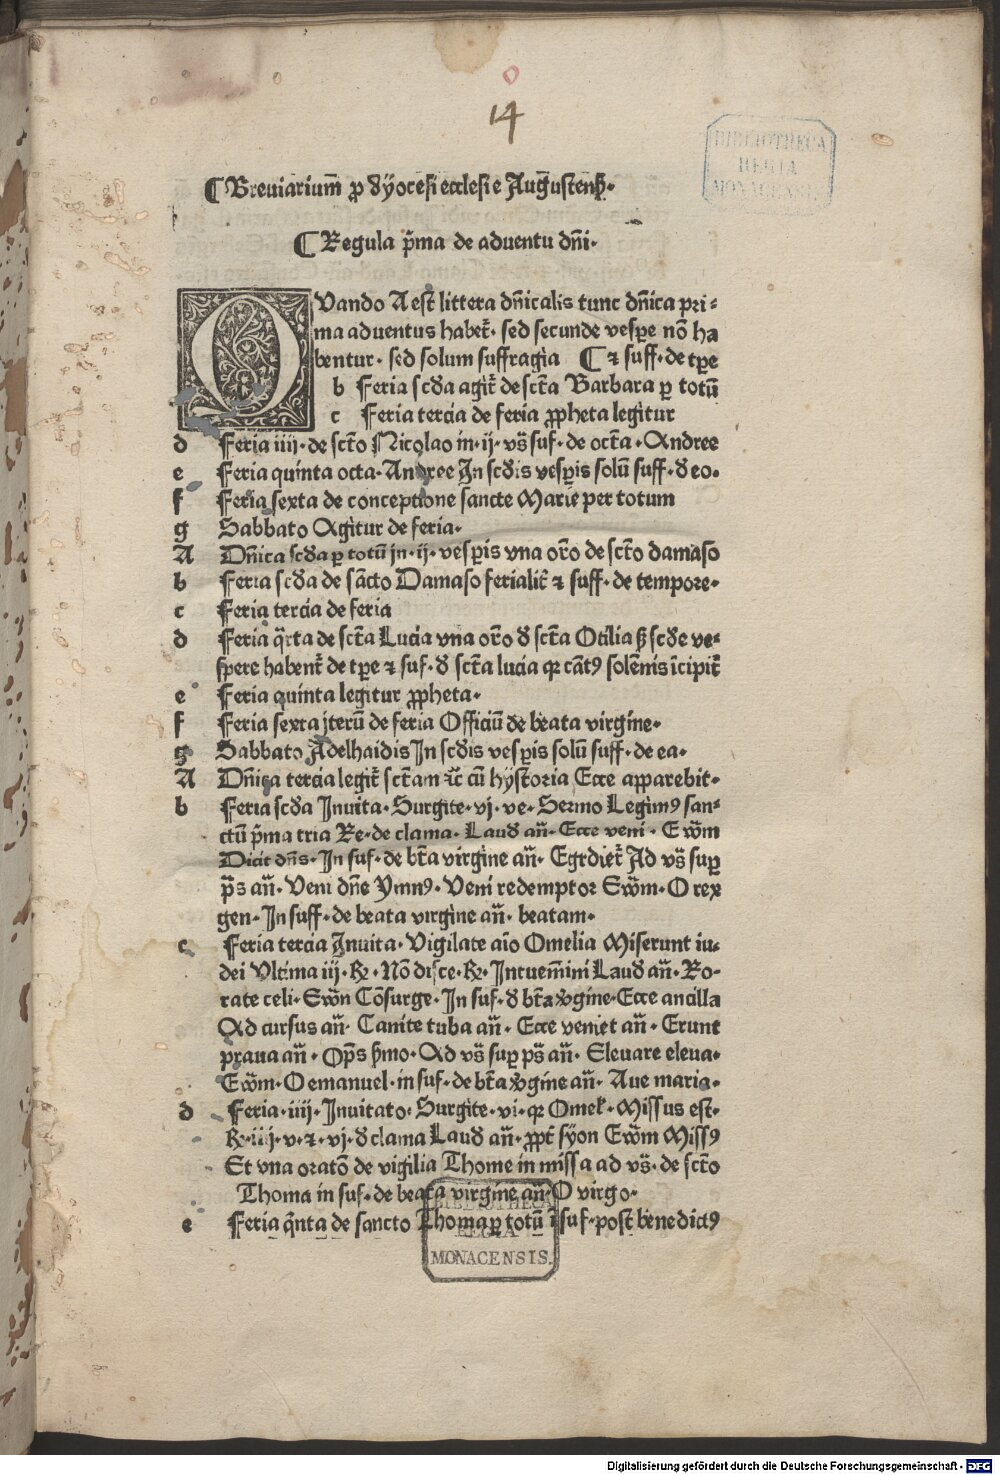 14
BIBLIOTHECA
REGIA
MONACENSIS.
¶ Breuiarium̄ ꝓ dyocesi ecclesie Augustenẜ.
¶ Regula p̄ma de aduentu dn̄i.
QVando A est littera dn̄icalis tunc dn̄ica pri⸗
ma aduentus habet᷑. sed secunde vesꝑe nō ha
bentur. sed solum suffragia ¶ ⁊ suff. de tꝑe
b Feria scd̄a agit᷑ de sct̄a Barbara ꝑ totū
c Feria tercia de feria ꝓpheta legitur
d Feria iiij. de sct̄o Nicolao in. ij. vs̄ suf. de oct̄a. Andree
e Feria quinta octa. Andree In scd̄is vesꝑis solū suff. d̄ eo.
f Feria sexta de conceptione sancte Marie per totum
g Sabbato Agitur de feria.
A Dn̄ica scd̄a ꝑ totū jn. ij. vesꝑis vna orō de sct̄o damaso
b Feria scd̄a de sācto Damaso ferialit᷑ ⁊ suff. de tempore.
c Feria tercia de feria
d Feria q̄rta de sct̄a Lucia vna orō d̄ sct̄a Otilia ẜꝫ scd̄e ve⸗
spere habent᷑ de tꝑe ⁊ suf. d̄ sct̄a lucia qꝛ cāt⁹ solēnis īcipit᷑
e Feria quinta legitur ꝓpheta.
f Feria sexta jterū de feria Officiū de beata virgine.
g Sabbato Adelhaidis In scd̄is vesꝑis solū suff. de ea.
A Dn̄ica tercia legit᷑ sct̄am ⁊c̄ cū hystoria Ecce apparebit.
b Feria scd̄a Inuita. Surgite. vj. ve. Sermo Legim⁹ san⸗
ctū p̄ma tria Re. de clama. Laud̄ an̄. Ecce veni. Ewm̄
Dicit dn̄s. In suf. de bt̄a virgine an̄. Egrdiet᷑ Ad vs̄ suꝑ
p̄s an̄. Veni dn̄e Ymn⁹. Veni redemptor Ewm̄. O rex
gen. In suff. de beata virgine an̄. beatam.
c Feria tercia Inuita. Vigilate aīo Omelia Miserunt iu⸗
dei Vltima iij. ℞. Nō disce. ℞. Intuem̄ini Laud̄ an̄. Ro⸗
rate celi. Ewm̄ Cōsurge. In suf. d̄ bt̄a v̓gine. Ecce ancilla
Ad cursus an̄. Canite tuba an̄. Ecce veniet an̄. Erunt
praua an̄. Op̄s ẜmo. Ad vs̄ suꝑ ps̄ an̄. Eleuare eleua.
Ewm̄. O emanuel. in suf. de bt̄a v̓gine an̄. Aue maria.
d Feria. iiij. Inuitato. Surgite. vi. qꝛ Omel̓. Missus est.
℞. iiij. v. ⁊. vj. d̄ clama Laud̄ an̄. ꝓpt̄ syon Ewm̄ Miss⁹
Et vna oratō de vigilia Thome in missa ad vs̄. de sct̄o
Thoma in suf. de beata virgine an̄. O virgo.
e Feria q̄nta de sancto Thoma ꝑ totū ī suf. post benedict⁹
BIBLIOTHECA
REGIA
MONACENSIS.
Digitalisierung gefördert durch die Deutsche Forschungsgemeinschaft - DFG